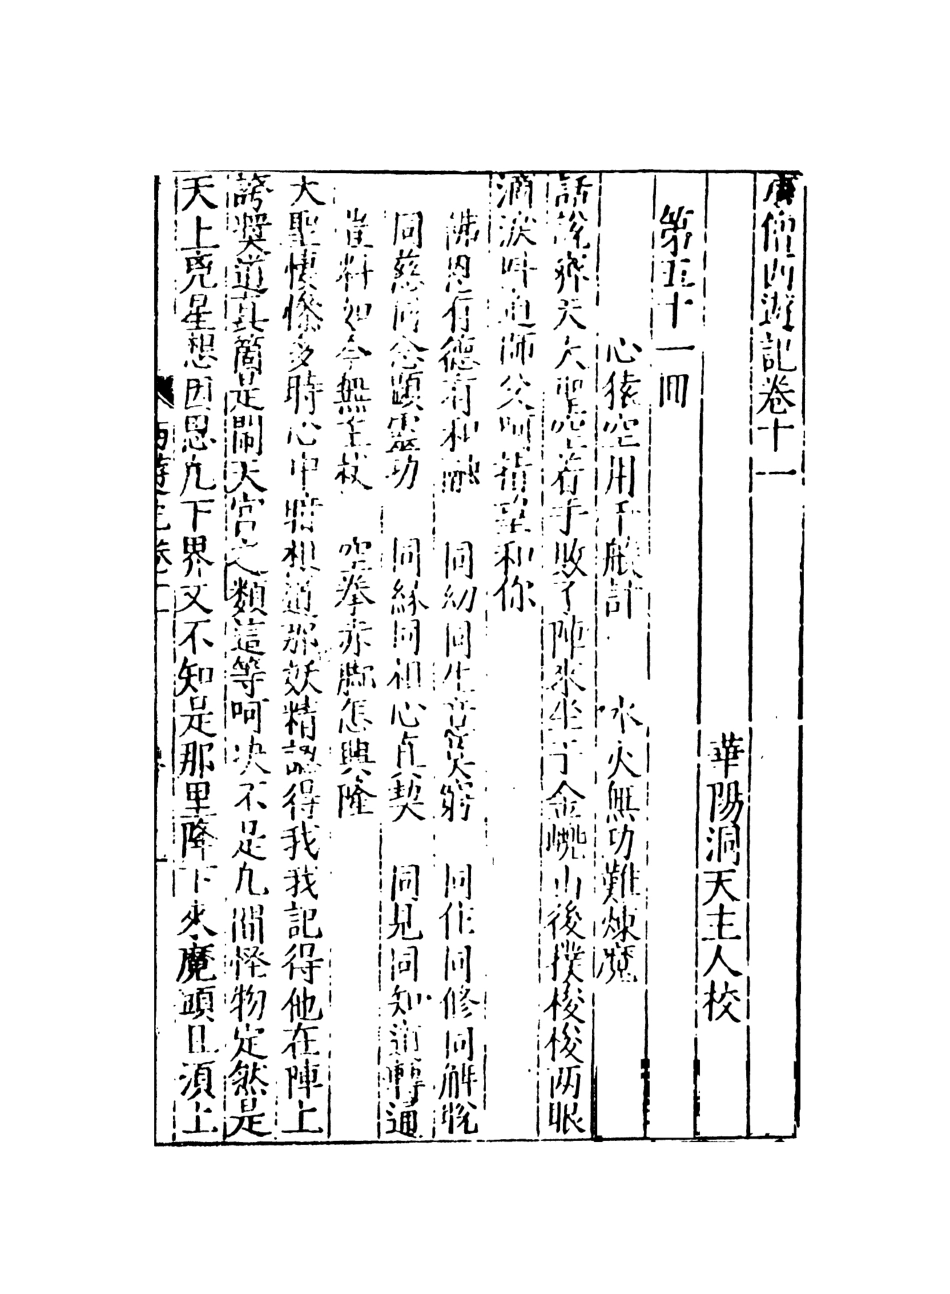 唐僧西遊記卷十一
華陽洞天主人校
第五十一回
心猿空用千般計　水火無功難煉魔
話說齊天大聖空着手敗了陣來坐于金㠉山後撲梭梭兩眼
滴淚呌道師父呵指望和你
佛恩有德有和融　同幼同生意莫窮　同住同修同解脫
同慈同念顯靈功　同緣同相心真契　同見同知道轉通
豈料如今無主杖　空拳赤脚怎興隆
大聖悽慘多時心中暗想道那妖精認得我我記得他在陣上
誇奬道真箇是鬧天宮之類這等呵决不是凡間怪物定然是
天上兇星想因思凡下界又不知是那里降下來魔頭且須上
西遊記卷十一